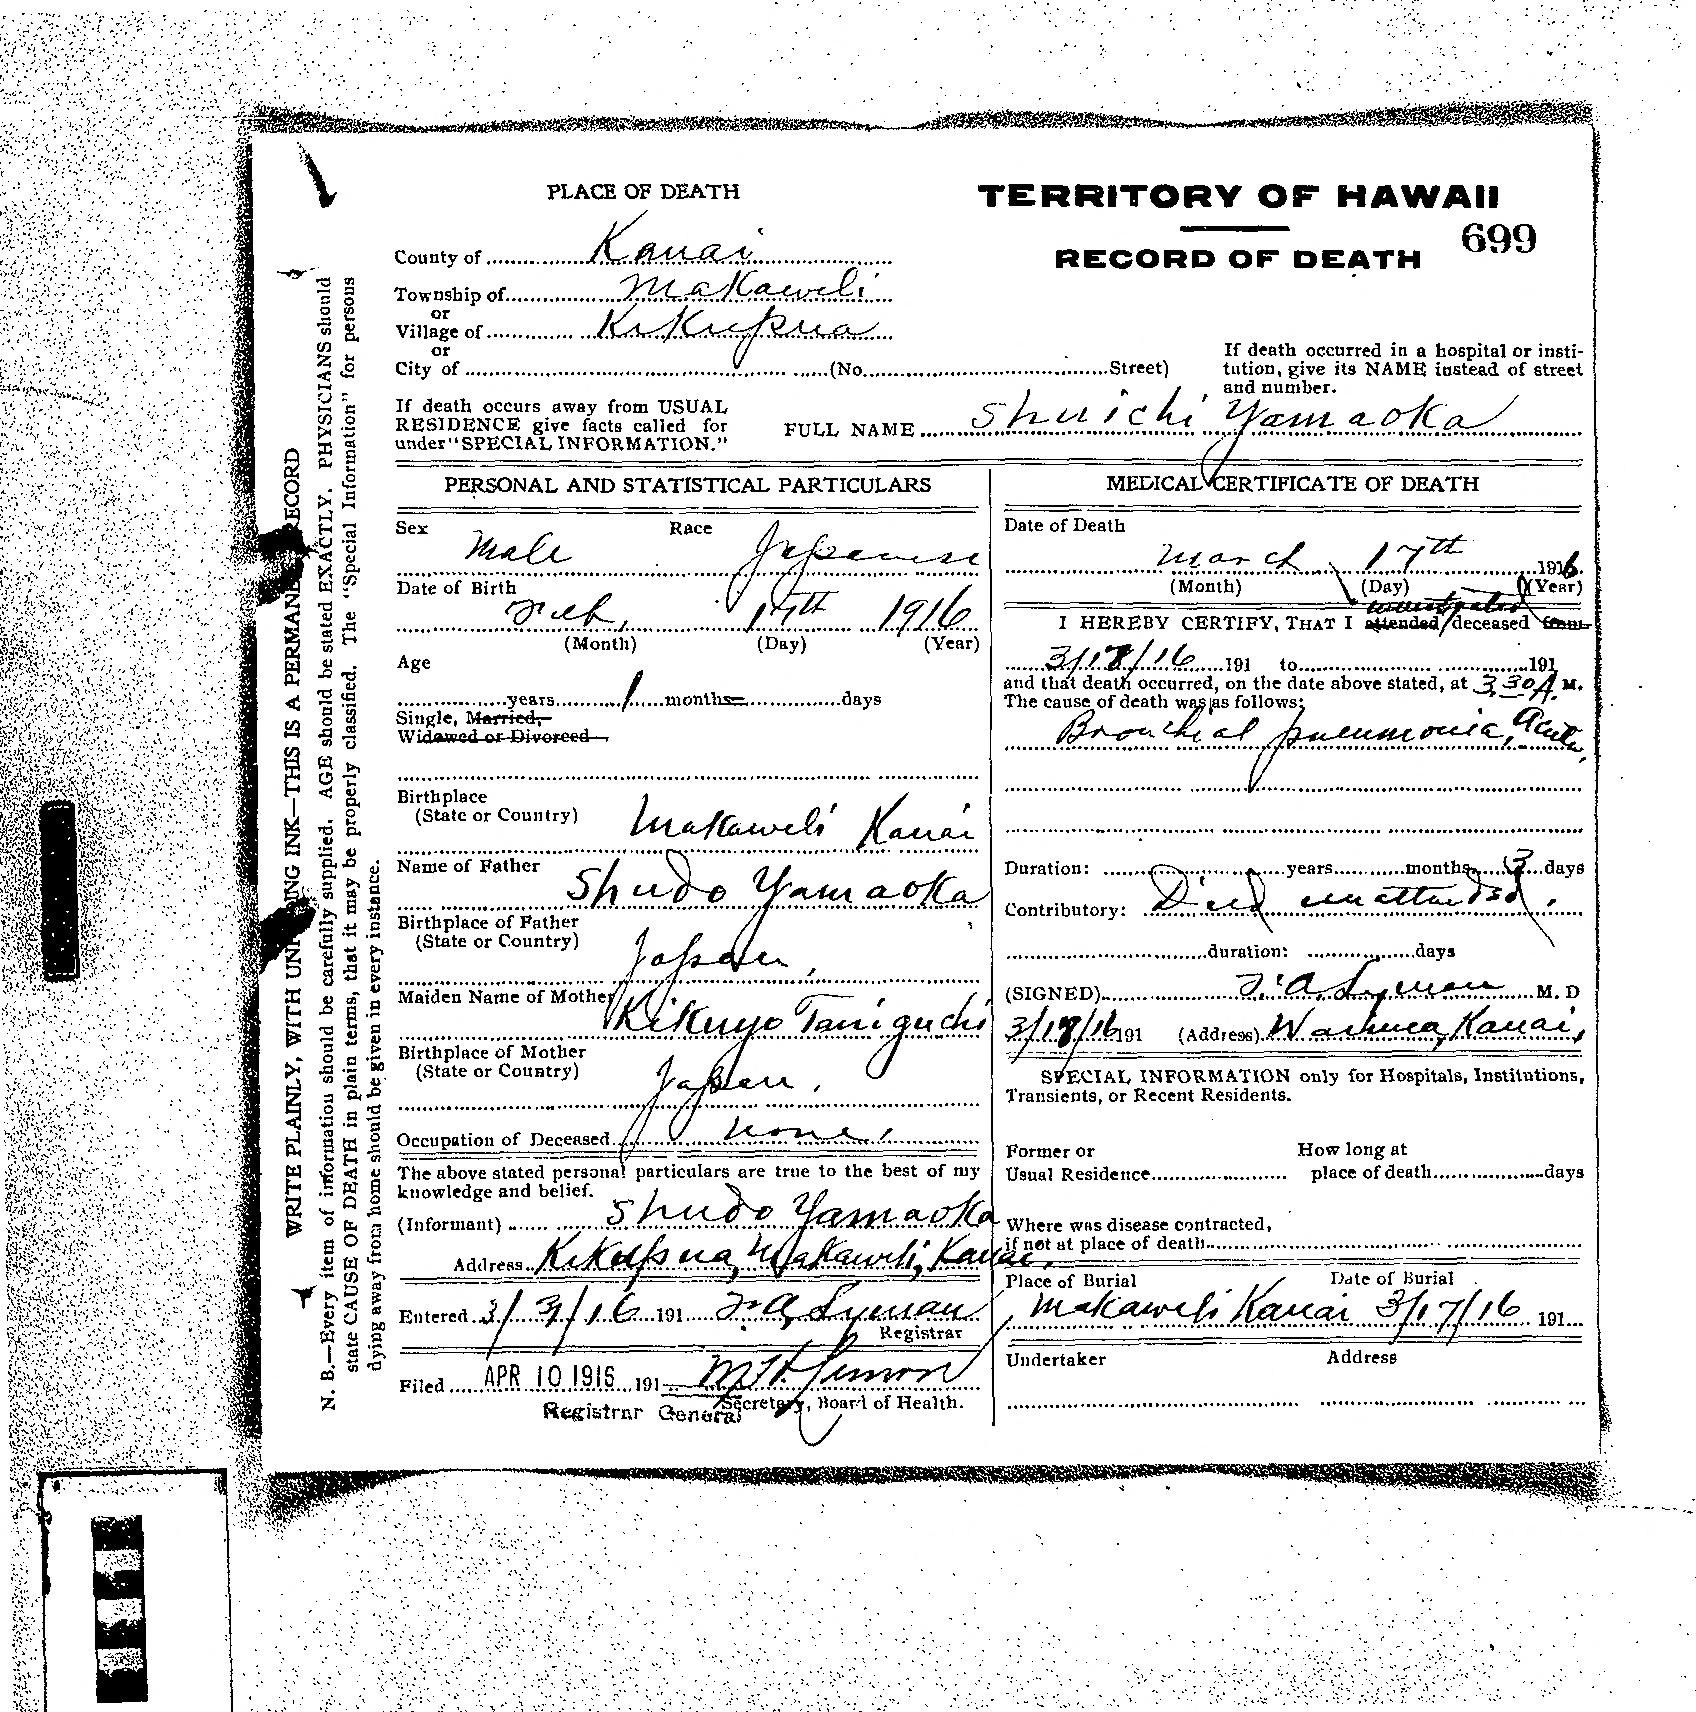 PLACE OF DEATH
TERRITORY OF HAWAII
699
RECORD OF DEATH
County of Kauai
Township of Makaweli
or
Village of Kikupua
or
City of (No. Street)
If death occurred in a hospital or insti-
tution, give its NAME instead of street
and number.
If death occurs away from USUAL
RESIDENCE give facts called for
under "SPECIAL INFORMATION."
FULL NAME Shuichi Yamaoka
PERSONAL AND STATISTICAL PARTICULARS
Sex Male Race Japanese
Date of Birth
Feb. 17th 1916
(Month) (Day) (Year)
Age
years 1 months days
Single, Married,
Widowed or Divorced
Birthplace
(State or Country) Makaweli Kauai
Name of Father Shudo Yamaoka
Birthplace of Father
(State or Country) Japan.
Maiden Name of Mother Kikuyo Taniguchi
Birthplace of Mother
(State or Country) Japan.
Occupation of Deceased none.
The above stated personal particulars are true to the best of my
knowledge and belief.
(Informant) Shudo Yamaoka
Address Kikupua, Makaweli, Kauai.
Entered 191 F. A. Lyman
Registrar
Filed APR 10 1916 191
Secretary, Board of Health.
Registrar General
MEDICAL CERTIFICATE OF DEATH
Date of Death
March 17th 1916
(Month) (Day) (Year)
investigated
I HEREBY CERTIFY, THAT I attended deceased from
3/17/16 191 to 191
and that death occurred, on the date above stated, at 3.30 A. M.
The cause of death was as follows:
Bronchial pneumonia, Acute.
Duration: years months 3 days
Contributory: Died unattended.
duration: days
(SIGNED) F. A. Lyman M. D
3/17/16 191 (Address) Waimea, Kauai.
SPECIAL INFORMATION only for Hospitals, Institutions,
Transients, or Recent Residents.
Former or How long at
Usual Residence place of death days
Where was disease contracted,
if not at place of death
Place of Burial Date of Burial
Makaweli Kauai 3/17/16 191
Undertaker Address
WRITE PLAINLY, WITH UNFADING INK—THIS IS A PERMANENT RECORD
N. B.—Every item of information should be carefully supplied. AGE should be stated EXACTLY. PHYSICIANS should
state CAUSE OF DEATH in plain terms, that it may be properly classified. The "Special Information" for persons
dying away from home should be given in every instance.